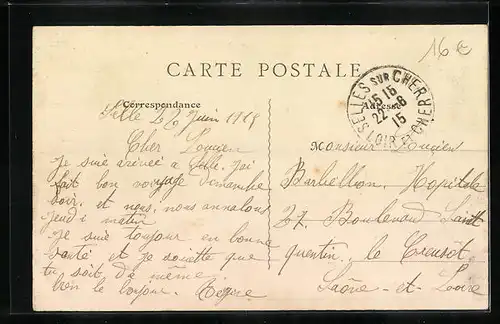 16 €
CARTE POSTALE
Correspondance
Adresse
SELLES SUR CHER
15 15
22 - 6
15
LOIR ET CHER
Selle 22 Juin 1915
Cher Lucien
Je suis arivée a Selle. J'ai
fait bon voyage dimanche
soir. et nous, nous annalons
jeudi matin
Je suie toujour en bonne
santé et je souette que
tu soit de même.
bien le bonjour.
Monsieur Lucien
Barbellion. Hopitale
27. Boulevard Saint
quentin. le Creusôt
Saône-et-Loire